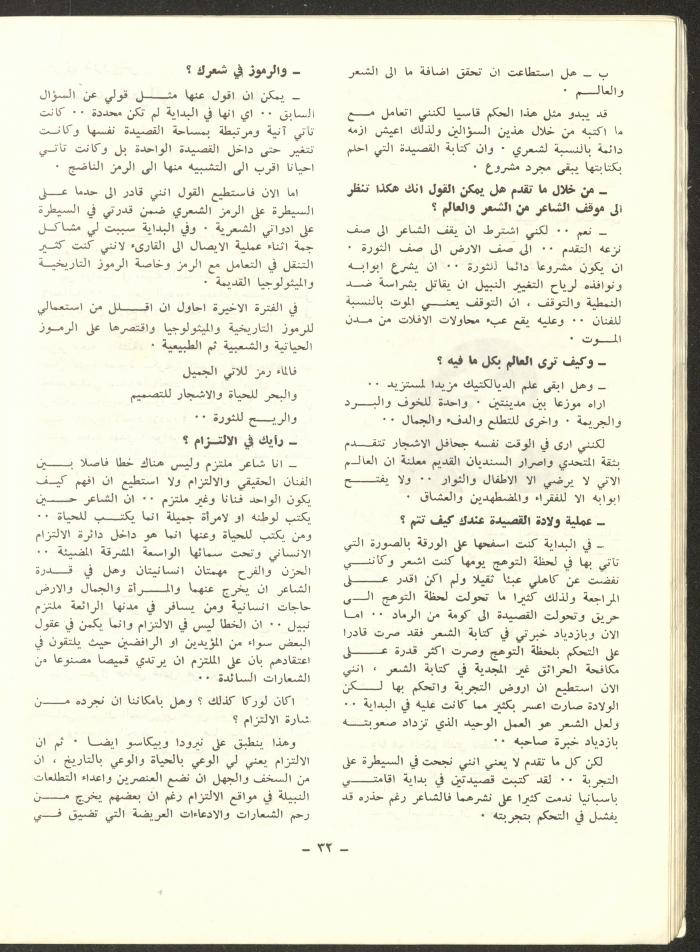 ب ـ هل استطاعت ان تحقق اضافة ما الى الشعر
والعالـــم ٠
قد يبدو مثل هذا الحكم قاسيا لكنني اتعامل مـــع
ما اكتبه من خلال هذين السؤالين ولذلك اعيش ازمه
دائمة بالنسبة لشعري ٠ وان كتابة القصيدة التي احلم
بكتابتها يبقى مجرد مشروع ٠
ـ من خلال ما تقدم هل يمكن القول انك هكذا تنظر
الى موقف الشاعر من الشعر والعالم ؟
ـ نعم ٠٠ لكنني اشترط ان يقف الشاعر الى صف
نزعه التقدم ٠٠ الى صف الارض الى صف الثورة ٠
ان يكون مشروعا دائما للثورة ٠٠ ان يشرع ابوابـه
ونوافذه لرياح التغيير النبيل ان يقاتل بشراسة ضـد
النمطية والتوقف ، ان التوقف يعنـــي الموت بالنسبة
للفنان ٠٠ وعليه يقع عبء محاولات الافلات من مـدن
المـــوت ٠
ـ وكيف ترى العالم بكل ما فيه ؟
ـ وهل ابقى علم الديالكتيك مزيدا لمستزيد ٠٠
اراه موزعا بين مدينتين ٠ واحدة للخوف والبـــرد
والجريمة ٠ واخرى للتطلع والدفء والجمال ٠٠
لكنني ارى في الوقت نفسه جحافل الاشجار تتقـــدم
بثقة المتحدي واصرار السنديان القديم معلنة ان العالـم
الاتي لا يرضي الا الاطفال والثوار ٠٠ ولا يفتـــح
ابوابه الا للفقراء والمضطهدين والعشاق ٠
ـ عملية ولادة القصيدة عندك كيف تتم ؟
ـ في البداية كنت اسفحها على الورقة بالصورة التي
تاتي بها في لحظة التوهج يومها كنت اشعر وكأننـــي
نفضت عن كاهلي عبئا ثقيلا ولم اكن اقدر علـــى
المراجعة ولذلك كثيرا ما تحولت لحظة التوهج الـــى
حريق وتحولت القصيدة الى كومة من الرماد ٠٠ امـا
الان وبازدياد خبرتي في كتابة الشعر فقد صرت قادرا
على التحكم بلحظة التوهج وصرت اكثر قدرة علـــى
مكافحة الحرائق غير المجدية في كتابة الشعر ، انني
الان استطيع ان اروض التجربة واتحكم بها لـــكن
الولادة صارت اعسر بكثير مما كانت عليه في البداية ٠٠
ولعل الشعر هو العمل الوحيد الذي تزداد صعوبتـــه
بازدياد خبرة صاحبه ٠٠
لكن كل ما تقدم لا يعني انني نجحت في السيطرة على
التجربة ٠٠ لقد كتبت قصيدتين في بداية اقامتـــي
باسبانيا ندمت كثيرا على نشرهما فالشاعر رغم حذره قد
يفشل في التحكم بتجربته ٠
ـ والرموز في شعرك ؟
ـ يمكن ان اقول عنها مثـــل قولي عن السؤال
السابق ٠٠ اي انها في البداية لم تكن محددة ٠٠ كانت
تاتي آنية ومرتبطة بمساحة القصيدة نفسها وكانـت
تتغير حتى داخل القصيدة الواحدة بل وكانت تاتـي
احيانا اقرب الى التشبيه منها الى الرمز الناضج ٠
اما الان فاستطيع القول انني قادر الى حدما علـــى
السيطرة على الرمز الشعري ضمن قدرتي في السيطرة
على ادواتي الشعرية ٠ وفي البداية سببت لي مشاكـل
جمة اثناء عملية الايصال الى القارىء لانني كنت كثـير
التنقل في التعامل مع الرمز وخاصة الرموز التاريخيـة
والميثولوجيا القديمة ٠
في الفترة الاخيرة احاول ان اقـــلل من استعمالي
للرموز التاريخية والميثولوجيا واقتصرها على الرمـوز
الحياتية والشعبية ثم الطبيعية ٠
فالماء رمز للاتي الجميل
والبحر للحياة والاشجار للتصميم
والريـــح للثورة ٠٠
ـ رأيك في الالتـــزام ؟
ـ انا شاعر ملتزم وليس هناك خطا فاصلا بـــين
الفنان الحقيقي والالتزام ولا استطيع ان افهم كيـف
يكون الواحد فنانا وغير ملتزم ٠٠ ان الشاعر حـــين
يكتب لوطنه او لامرأة جميلة انما يكتـــب للحياة ٠٠
ومن يكتب للحياة وعنها انما هو داخل دائرة الالتزام
الانساني وتحت سمائها الواسعة المشرقة المضيئة ٠٠
الحزن والفرح مهمتان انسانيتان وهل في قـــدرة
الشاعر ان يخرج عنهما والمـــرأة والجمال والارض
حاجات انسانية ومن يسافر في مدنها الرائعة ملتزم
نبيل ٠٠ ان الخطا ليس في الالتزام وانما يكمن في عقول
البعض سواء من المؤيدين او الرافضين حيث يلتقون في
اعتقادهم بان على الملتزم ان يرتدي قميصا مصنوعا من
الشعارات السائدة ٠٠
اكان لوركا كذلك ؟ وهل بامكاننا ان نجرده مـــن
شارة الالتزام ؟
وهذا ينطبق على نيرودا وبيكاسو ايضـا ٠ ثم ان
الالتزام يعني لي الوعي بالحياة والوعي بالتاريخ ، ان
من السخف والجهل ان نضع العنصرين واعداء التطلعات
النبيلة في مواقع الالتزام رغم ان بعضهم يخرج مـــن
رحم الشعارات والادعاءات العريضة التي تضيق فـــي
ـ ٣٢ ـ